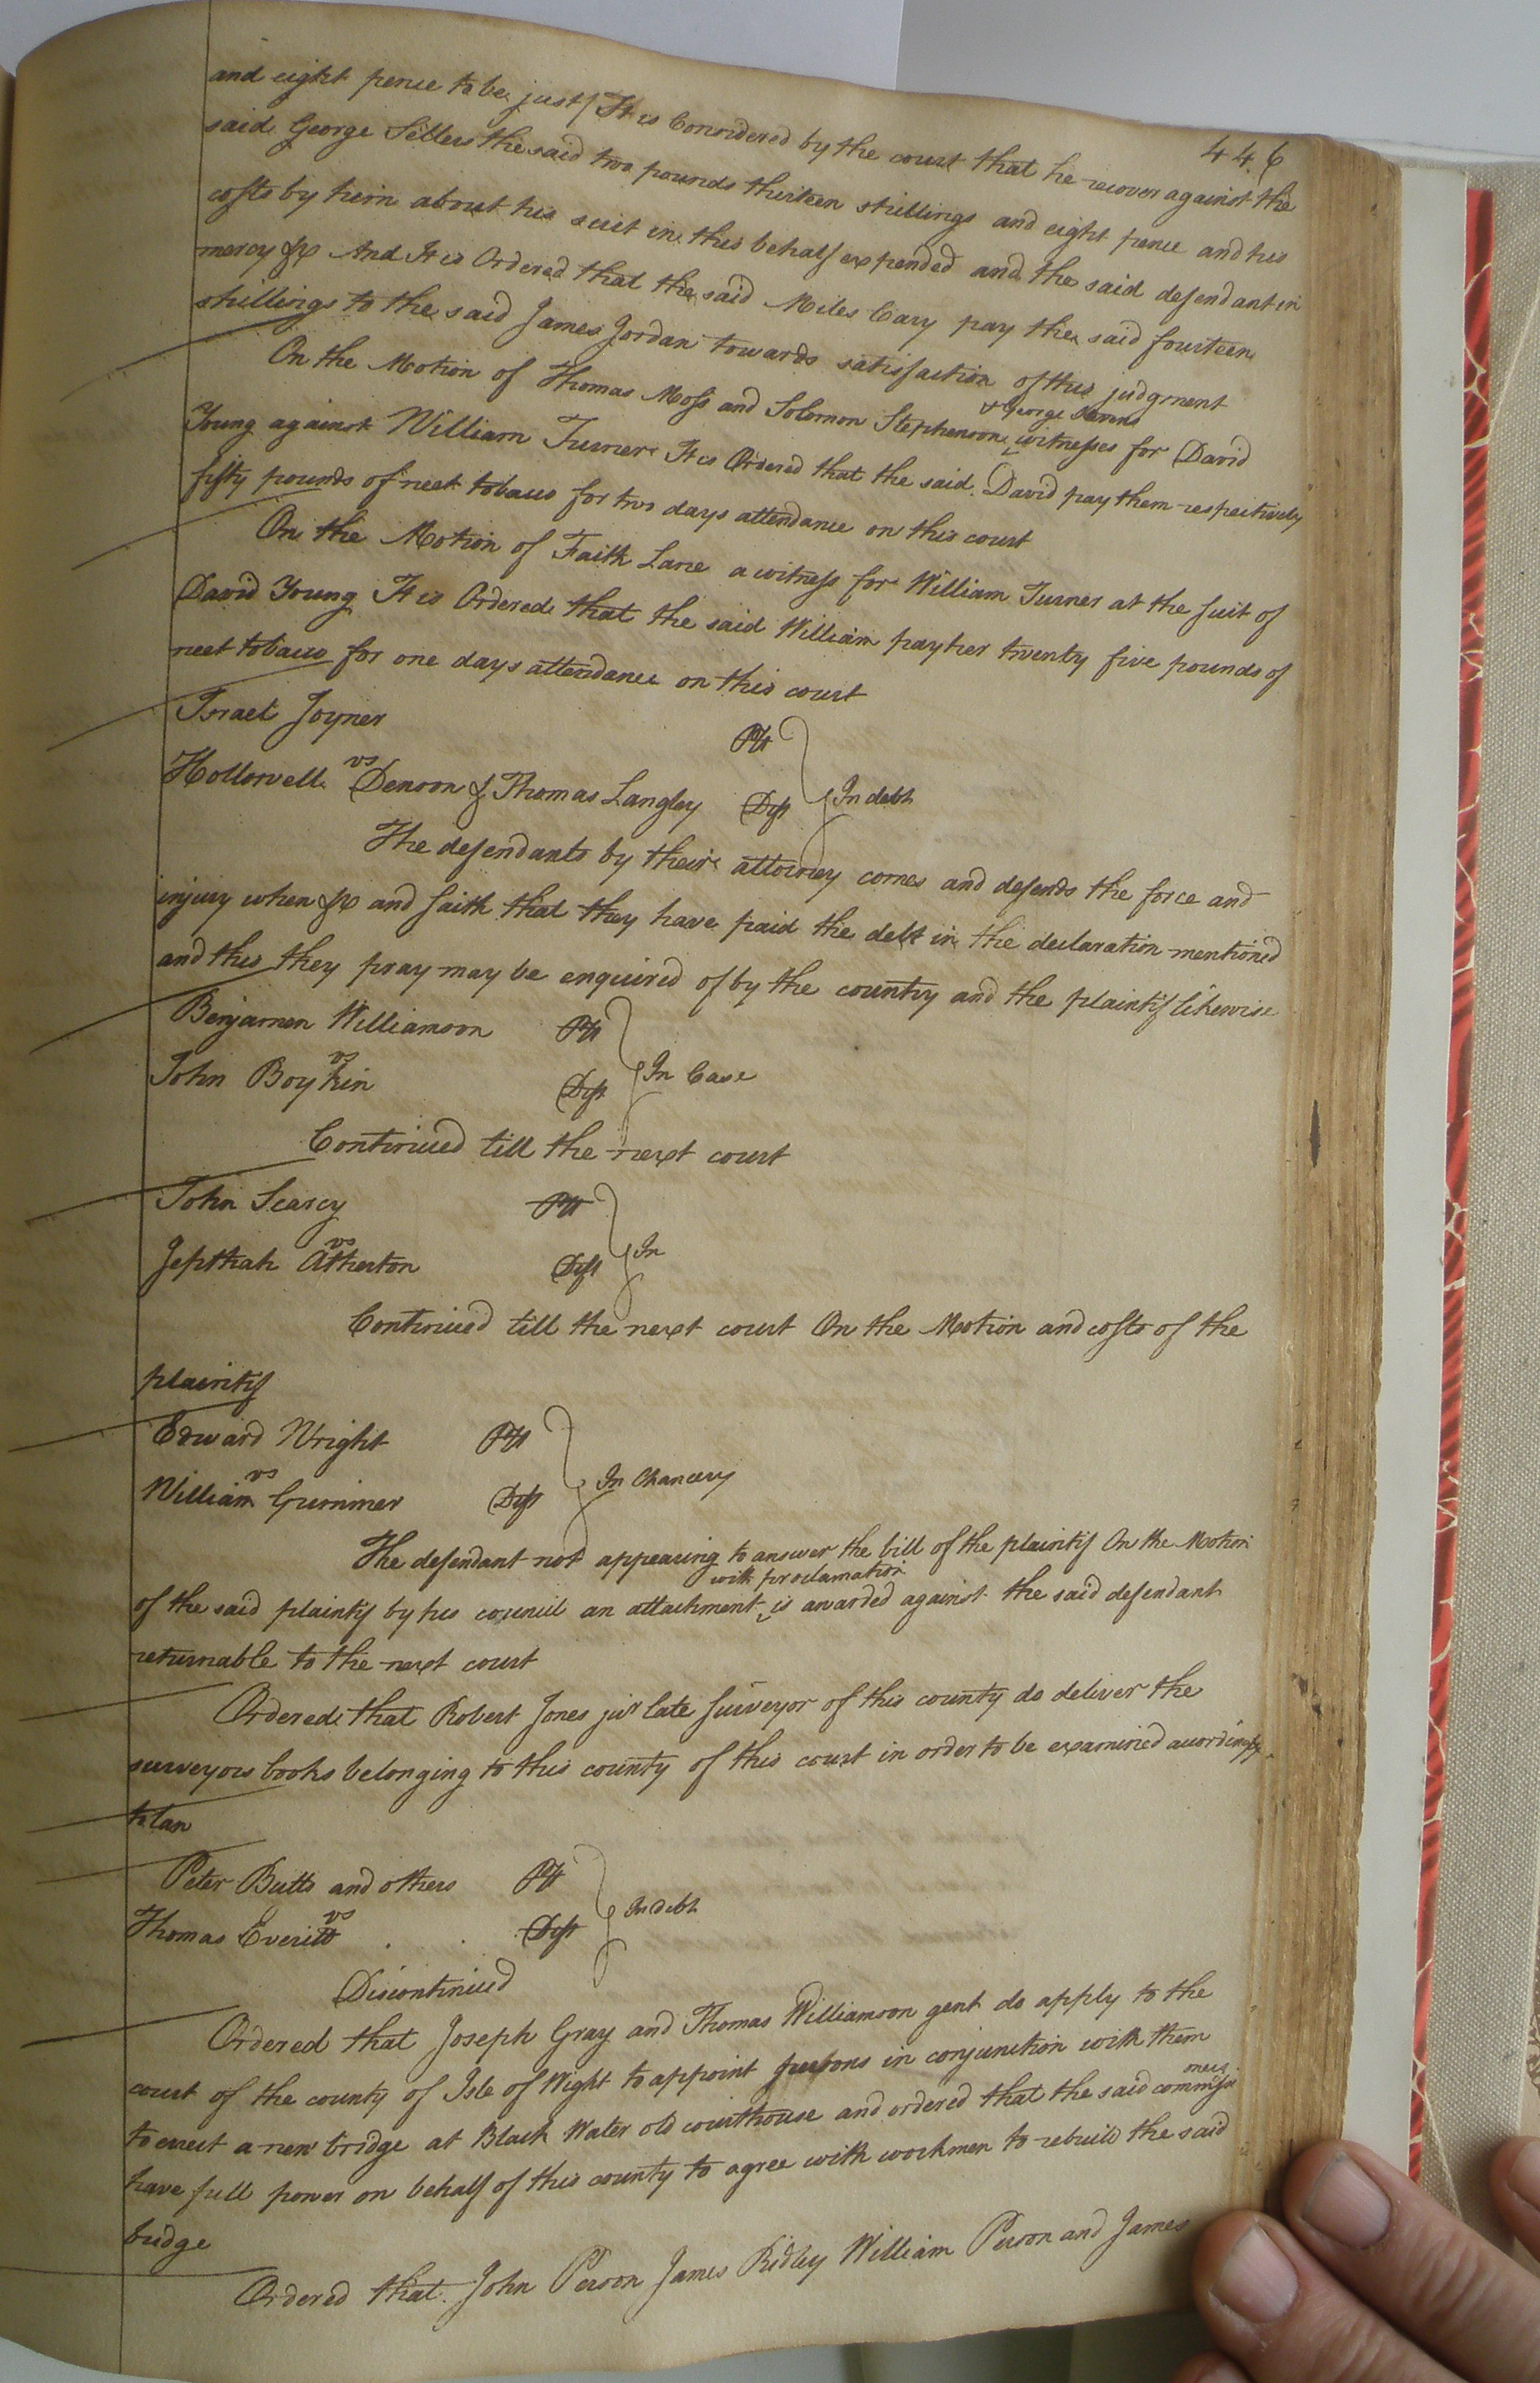 446
and eight pence to be just / It is Considered by the court that he recover against the
said George Sellers the said two pounds thirteen shillings and eight pence and his
costs by him about his suit in this behalf expended and the said defendant in
mercy &c And It is Ordered that the said Miles Cary pay the said fourteen
shillings to the said James Jordan towards satisfaction of this judgment
On the Motion of Thomas Moss and Solomon Stephenson & George witnesses for David
Young against William Turner It is Ordered that the said David pay them respectively
fifty pounds of neet tobacco for two days attendance on this court
On the Motion of Faith Lane a witness for William Turner at the suit of
David Young It is Ordered that the said William pay her twenty five pounds of
neet tobacco for one days attendance on this court
Israel Joyner Plt
vs
Hollowell Denson & Thomas Langley Dfts In debt
The defendants by their attorney comes and defends the force and
injury when &c and saith that they have paid the debt in the declaration mentioned
and this they pray may be enquired of by the country and the plaintif likewise
Benjamen Williamson Plt
vs
John Boykin Dft In Case
Continued till the next court
John Searcy Plt
vs
Jepthah Atherton Dft In
Continued till the next court On the Motion and costs of the
plaintif
Edward Wright Plt
vs
William Gummer Dft In Chancery
The defendant not appearing to answer the bill of the plaintif On the Motion
with proclamation
of the said plaintif by his council an attachment is awarded against the said defendant
returnable to the next court
Ordered that Robert Jones junr late surveyor of this county do deliver the
surveyors books belonging to this county of this court in order to be examined according
to law
Peter Butts and others Plt
vs
Thomas Everitt Dft In debt
Discontinued
Ordered that Joseph Gray and Thomas Williamson gent do apply to the
court of the county of Isle of Wight to appoint persons in conjunction with them
to erect a new bridge at Black Water old courthouse and ordered that the said commissioners
have full power on behalf of this county to agree with workmen to rebuild the said
bridge
Ordered that John Person James Ridley William Person and James